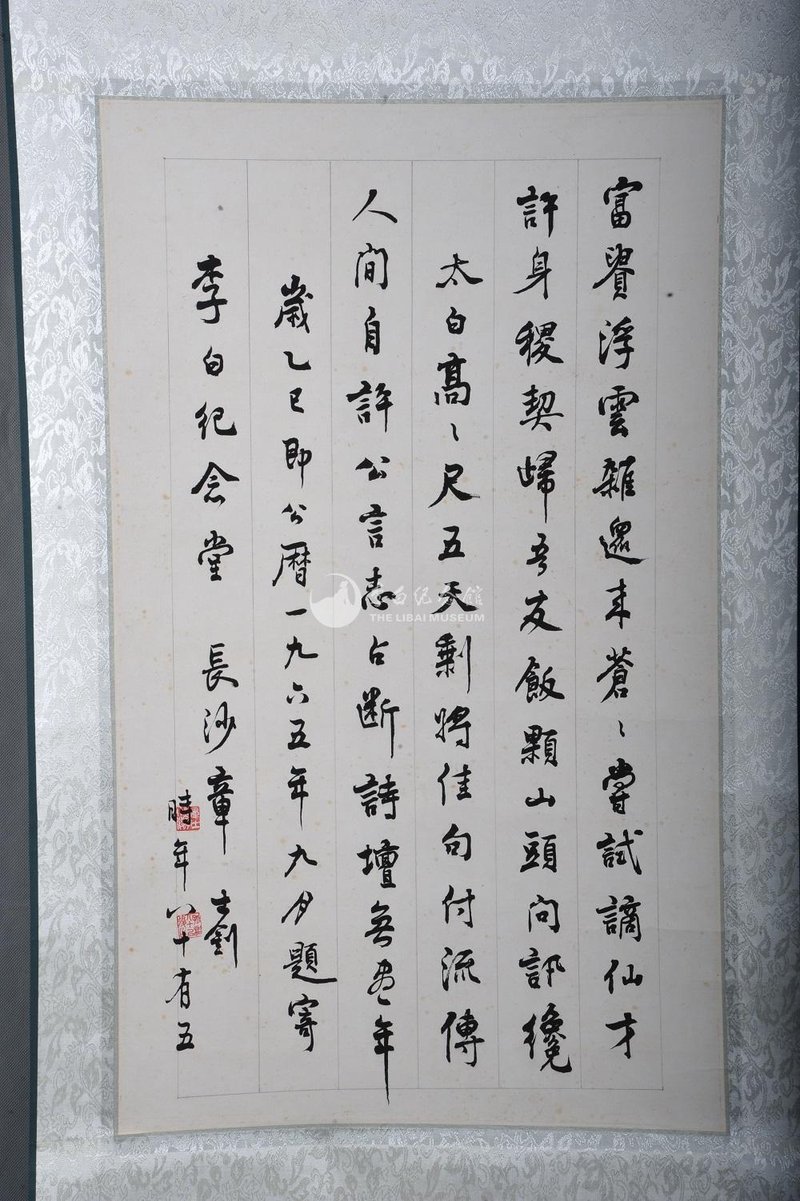 富貴浮雲雜遝來蒼〻嘗試謫仙才
許身稷契歸吾友飯顆山頭問訊纔
太白高〻尺五天剩將佳句付流傳
人間自許公言志占斷詩壇無盡年
歲乙巳即公曆一九六五年九月題寄
李白紀念堂 長沙章士釗
時年八十有五
李白纪念馆
THE LIBAI MUSEUM